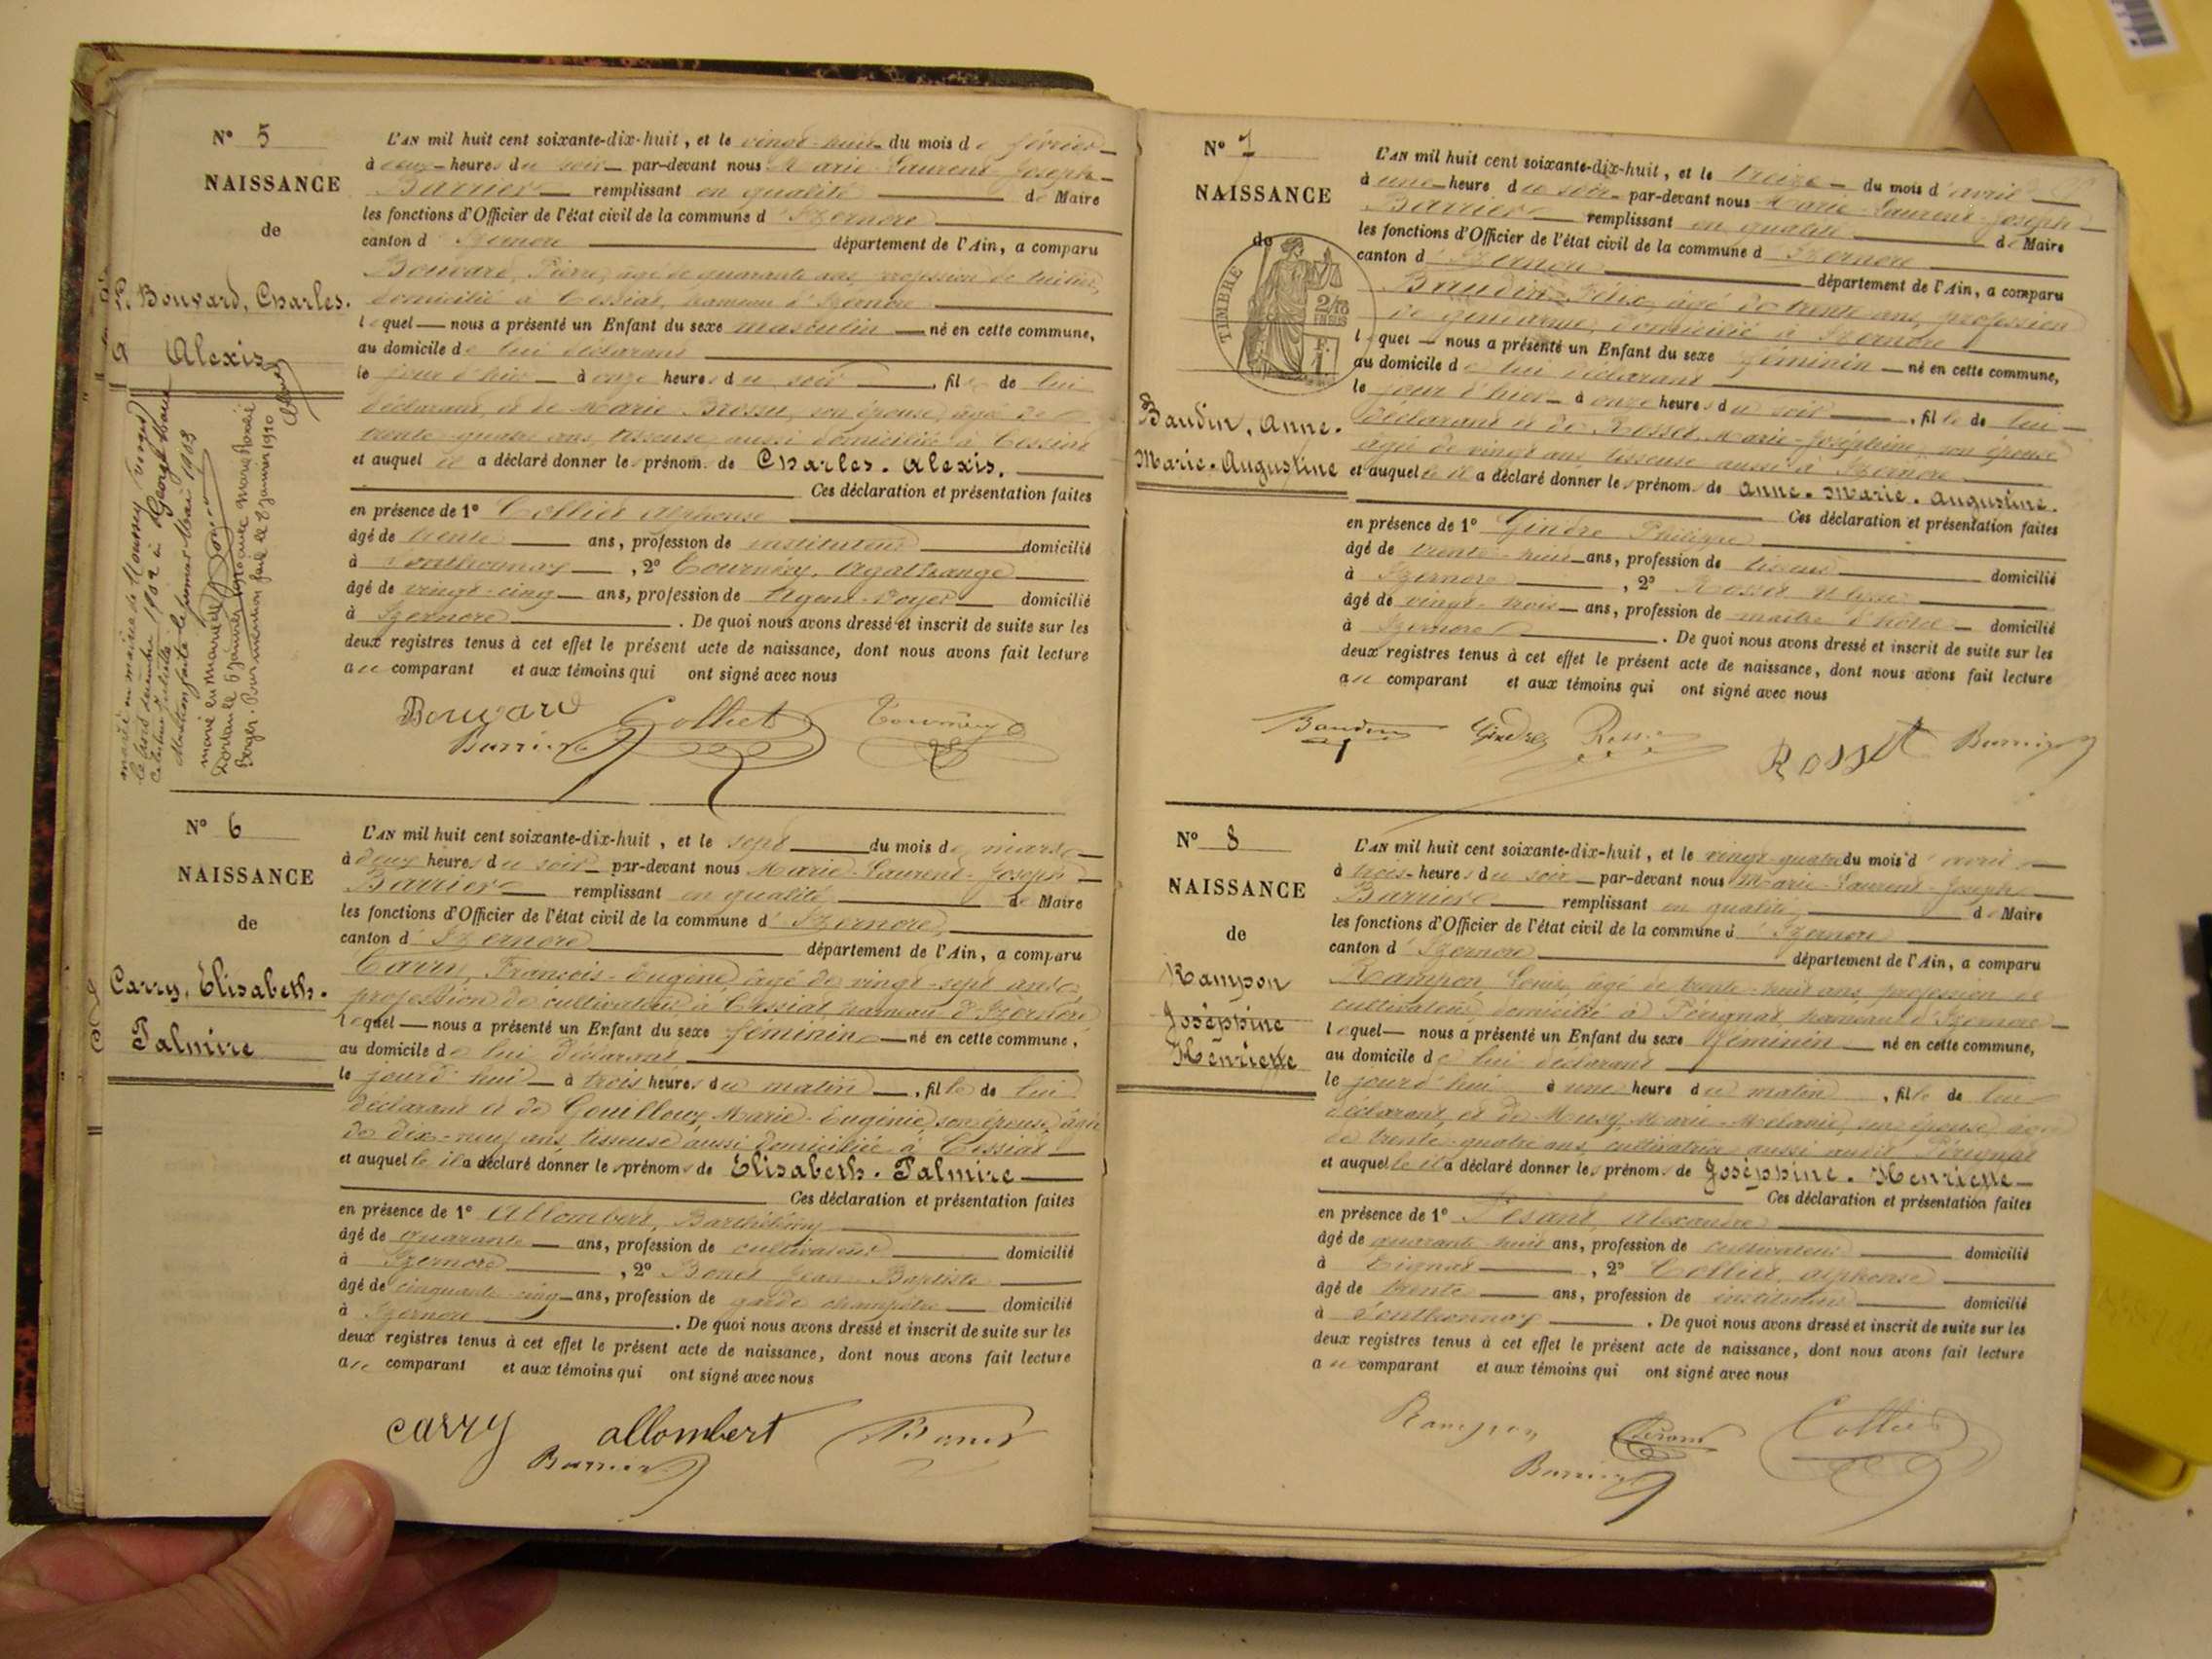 N° 5
NAISSANCE
de
Bouvard, Charles.
Alexis
L'AN mil huit cent soixante-dix-huit, et le vingt-huit du mois de février
à onze heures du soir par-devant nous Marie-Laurent-Joseph
Barrier remplissant en qualité de Maire
les fonctions d'Officier de l'état civil de la commune d'Izernore
canton d'Izernore département de l'Ain, a comparu
Bouvard, Pierre, âgé de quarante ans, profession de
domicilié à Cessiat, hameau d'Izernore
lequel nous a présenté un Enfant du sexe masculin né en cette commune,
au domicile de lui déclarant
le jour d'hier à onze heures du soir, fils de lui
déclarant, et de Marie Brossu, son épouse, âgée de
trente-quatre ans, tisseuse aussi domiciliée à Cessiat
et auquel il a déclaré donner les prénoms de Charles. Alexis.
Ces déclaration et présentation faites
en présence de 1° Colliet Alphonse
âgé de trente ans, profession de instituteur domicilié
à Sonthonnax, 2° Tournery, Agathange
âgé de vingt-cinq ans, profession de Agent-Voyer domicilié
à Izernore. De quoi nous avons dressé et inscrit de suite sur les
deux registres tenus à cet effet le présent acte de naissance, dont nous avons fait lecture
au comparant et aux témoins qui ont signé avec nous
Bouvard Colliet Tournery
Barrier
N° 6
NAISSANCE
de
Carry, Élisabeth.
Palmire
L'AN mil huit cent soixante-dix-huit, et le sept du mois de mars
à deux heures du soir par-devant nous Marie-Laurent-Joseph
Barrier remplissant en qualité de Maire
les fonctions d'Officier de l'état civil de la commune d'Izernore
canton d'Izernore département de l'Ain, a comparu
Carry, François-Eugène, âgé de vingt-sept ans,
profession de cultivateur, à Cessiat, hameau d'Izernore
lequel nous a présenté un Enfant du sexe féminin né en cette commune,
au domicile de lui déclarant
le jourd'hui à trois heures du matin, fille de lui
déclarant et de Gouilloux, Marie-Eugénie, son épouse, âgée
de dix-neuf ans, tisseuse aussi domiciliée à Cessiat
et auquelle il a déclaré donner les prénoms de Élisabeth. Palmire
Ces déclaration et présentation faites
en présence de 1° Allombert, Barthélémy
âgé de quarante ans, profession de cultivateur domicilié
à Izernore, 2° Bonet Jean-Baptiste
âgé de cinquante-cinq ans, profession de garde champêtre domicilié
à Izernore. De quoi nous avons dressé et inscrit de suite sur les
deux registres tenus à cet effet le présent acte de naissance, dont nous avons fait lecture
au comparant et aux témoins qui ont signé avec nous
carry allombert Bonet
Barrier
N° 7
NAISSANCE
de
TIMBRE
Baudin, Anne.
Marie-Augustine
L'AN mil huit cent soixante-dix-huit, et le treize du mois d'avril
à une heure du soir par-devant nous Marie-Laurent-Joseph
Barrier remplissant en qualité de Maire
les fonctions d'Officier de l'état civil de la commune d'Izernore
canton d'Izernore département de l'Ain, a comparu
Baudin Félix, âgé de trente ans, profession
de gendarme, domicilié à Izernore
lequel nous a présenté un Enfant du sexe féminin né en cette commune,
au domicile de lui déclarant
le jour d'hier à onze heures du soir, fille de lui
déclarant et de Rosset, Marie-Joséphine, son épouse
âgée de vingt ans tisseuse aussi à Izernore
et auquelle il a déclaré donner les prénoms de Anne. Marie. Augustine.
Ces déclaration et présentation faites
en présence de 1° Gindre Philippe
âgé de trente-huit ans, profession de tisseur domicilié
à Izernore, 2° Rosset Ulysse
âgé de vingt-trois ans, profession de maître d'hôtel domicilié
à Izernore. De quoi nous avons dressé et inscrit de suite sur les
deux registres tenus à cet effet le présent acte de naissance, dont nous avons fait lecture
au comparant et aux témoins qui ont signé avec nous
Baudin Gindre Rosset Barrier
N° 8
NAISSANCE
de
Rampon
Joséphine
Henriette
L'AN mil huit cent soixante-dix-huit, et le vingt-quatre du mois d'avril
à trois heures du soir par-devant nous Marie-Laurent-Joseph
Barrier remplissant en qualité de Maire
les fonctions d'Officier de l'état civil de la commune d'Izernore
canton d'Izernore département de l'Ain, a comparu
Rampon Louis, âgé de trente-huit ans, profession de
cultivateur, domicilié à Pérignat hameau d'Izernore
lequel nous a présenté un Enfant du sexe féminin né en cette commune,
au domicile de lui déclarant
le jourd'hui à une heure du matin, fille de lui
déclarant, et de Musy, Marie-Mélanie, son épouse, âgée
de trente-quatre ans, cultivatrice aussi audit Pérignat
et auquelle il a déclaré donner les prénoms de Joséphine. Henriette
Ces déclaration et présentation faites
en présence de 1° Pésant, Alexandre
âgé de quarante-huit ans, profession de cultivateur domicilié
à Tignat, 2° Colliet, Alphonse
âgé de trente ans, profession de instituteur domicilié
à Sonthonnax. De quoi nous avons dressé et inscrit de suite sur les
deux registres tenus à cet effet le présent acte de naissance, dont nous avons fait lecture
au comparant et aux témoins qui ont signé avec nous
Rampon Pésant Colliet
Barrier